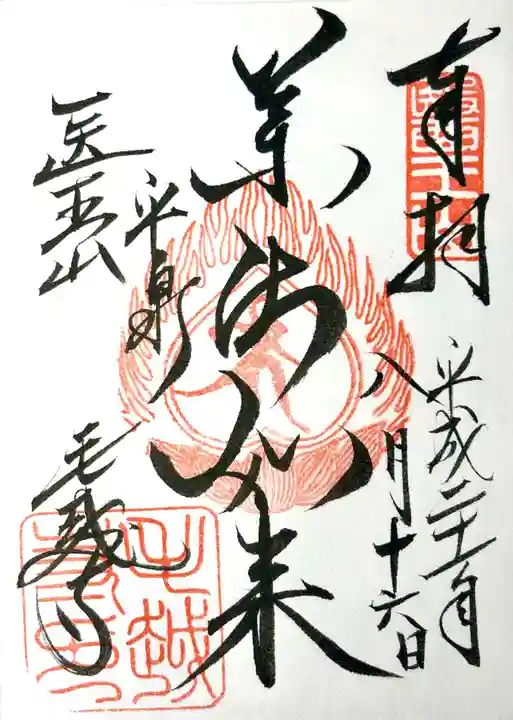 奉拝
平成二十二年
八月十六日
薬師如来
医王山
平泉
毛越寺